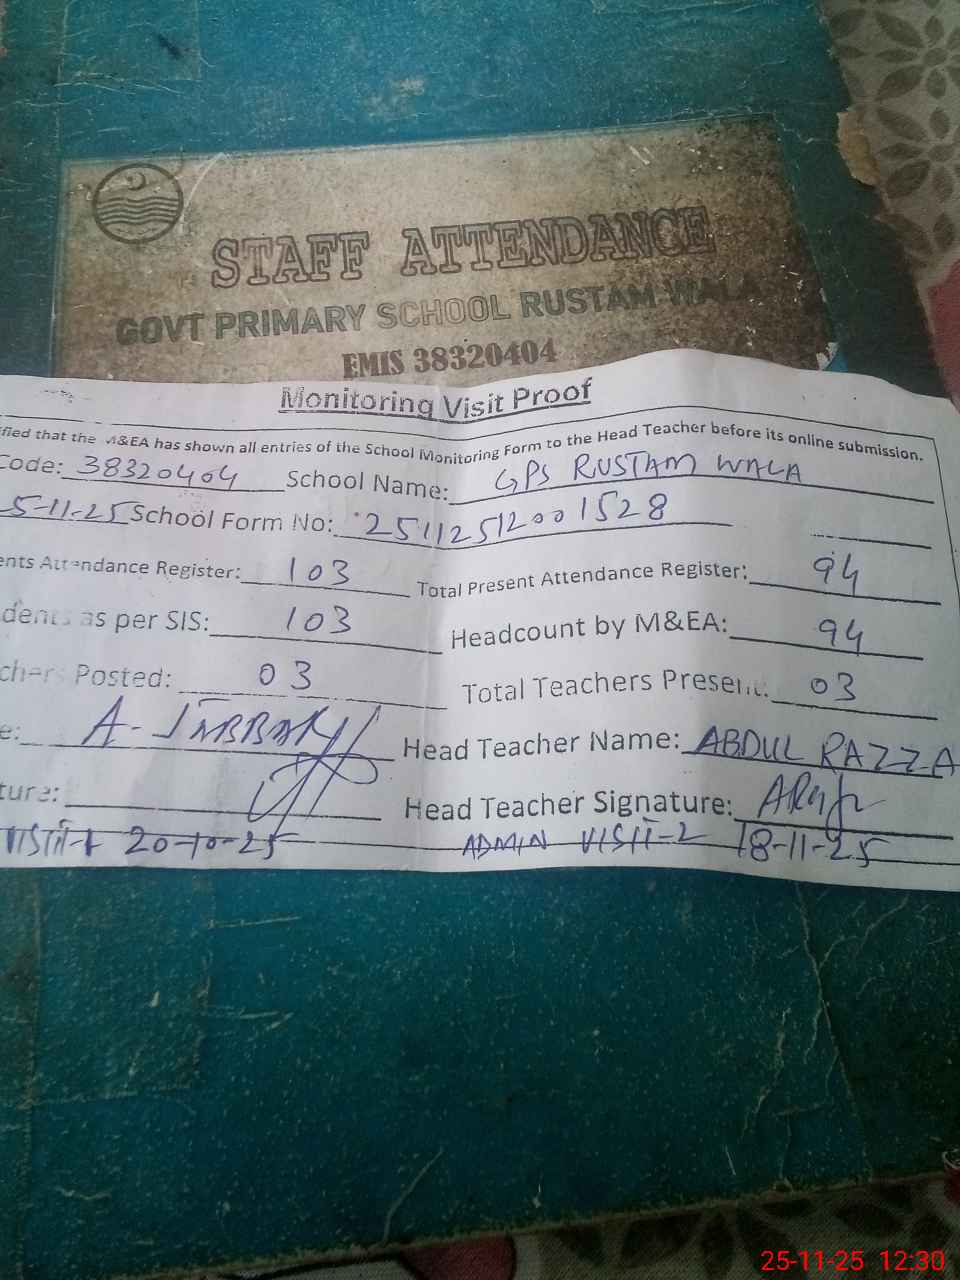 STAFF ATTENDANCE
GOVT PRIMARY SCHOOL RUSTAM WALA
EMIS 38320404
Monitoring Visit Proof
ified that the M&EA has shown all entries of the School Monitoring Form to the Head Teacher before its online submission.
Code: 38320404 School Name: GPS RUSTAM WALA
5-11-25 School Form No: 25112512001528
ents Attendance Register: 103 Total Present Attendance Register: 94
dents as per SIS: 103 Headcount by M&EA: 94
chers Posted: 03 Total Teachers Present: 03
e: A-JABBAR Head Teacher Name: ABDUL RAZZA
ture: Head Teacher Signature:
VISIT-1 20-10-25 ADMIN VISIT-2 18-11-25
25-11-25 12:30